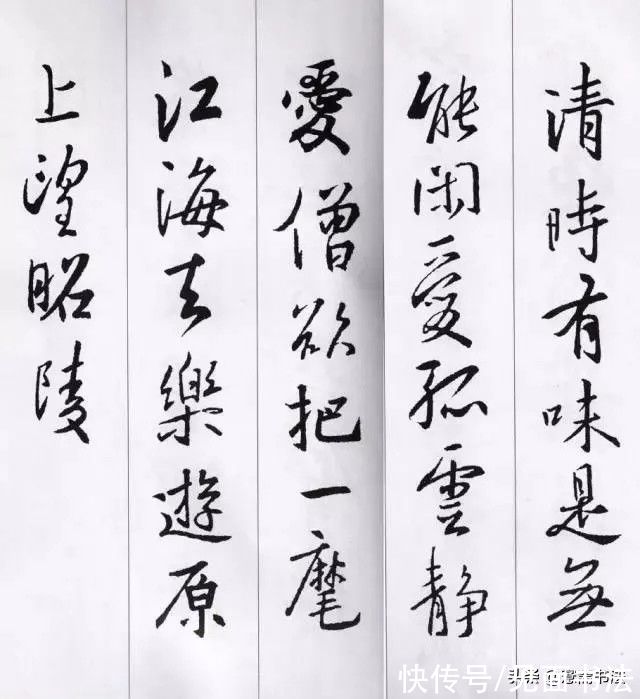 清時有味是無
能閑愛孤雲静
愛僧欲把一麾
江海去樂遊原
上望昭陵
快传号/